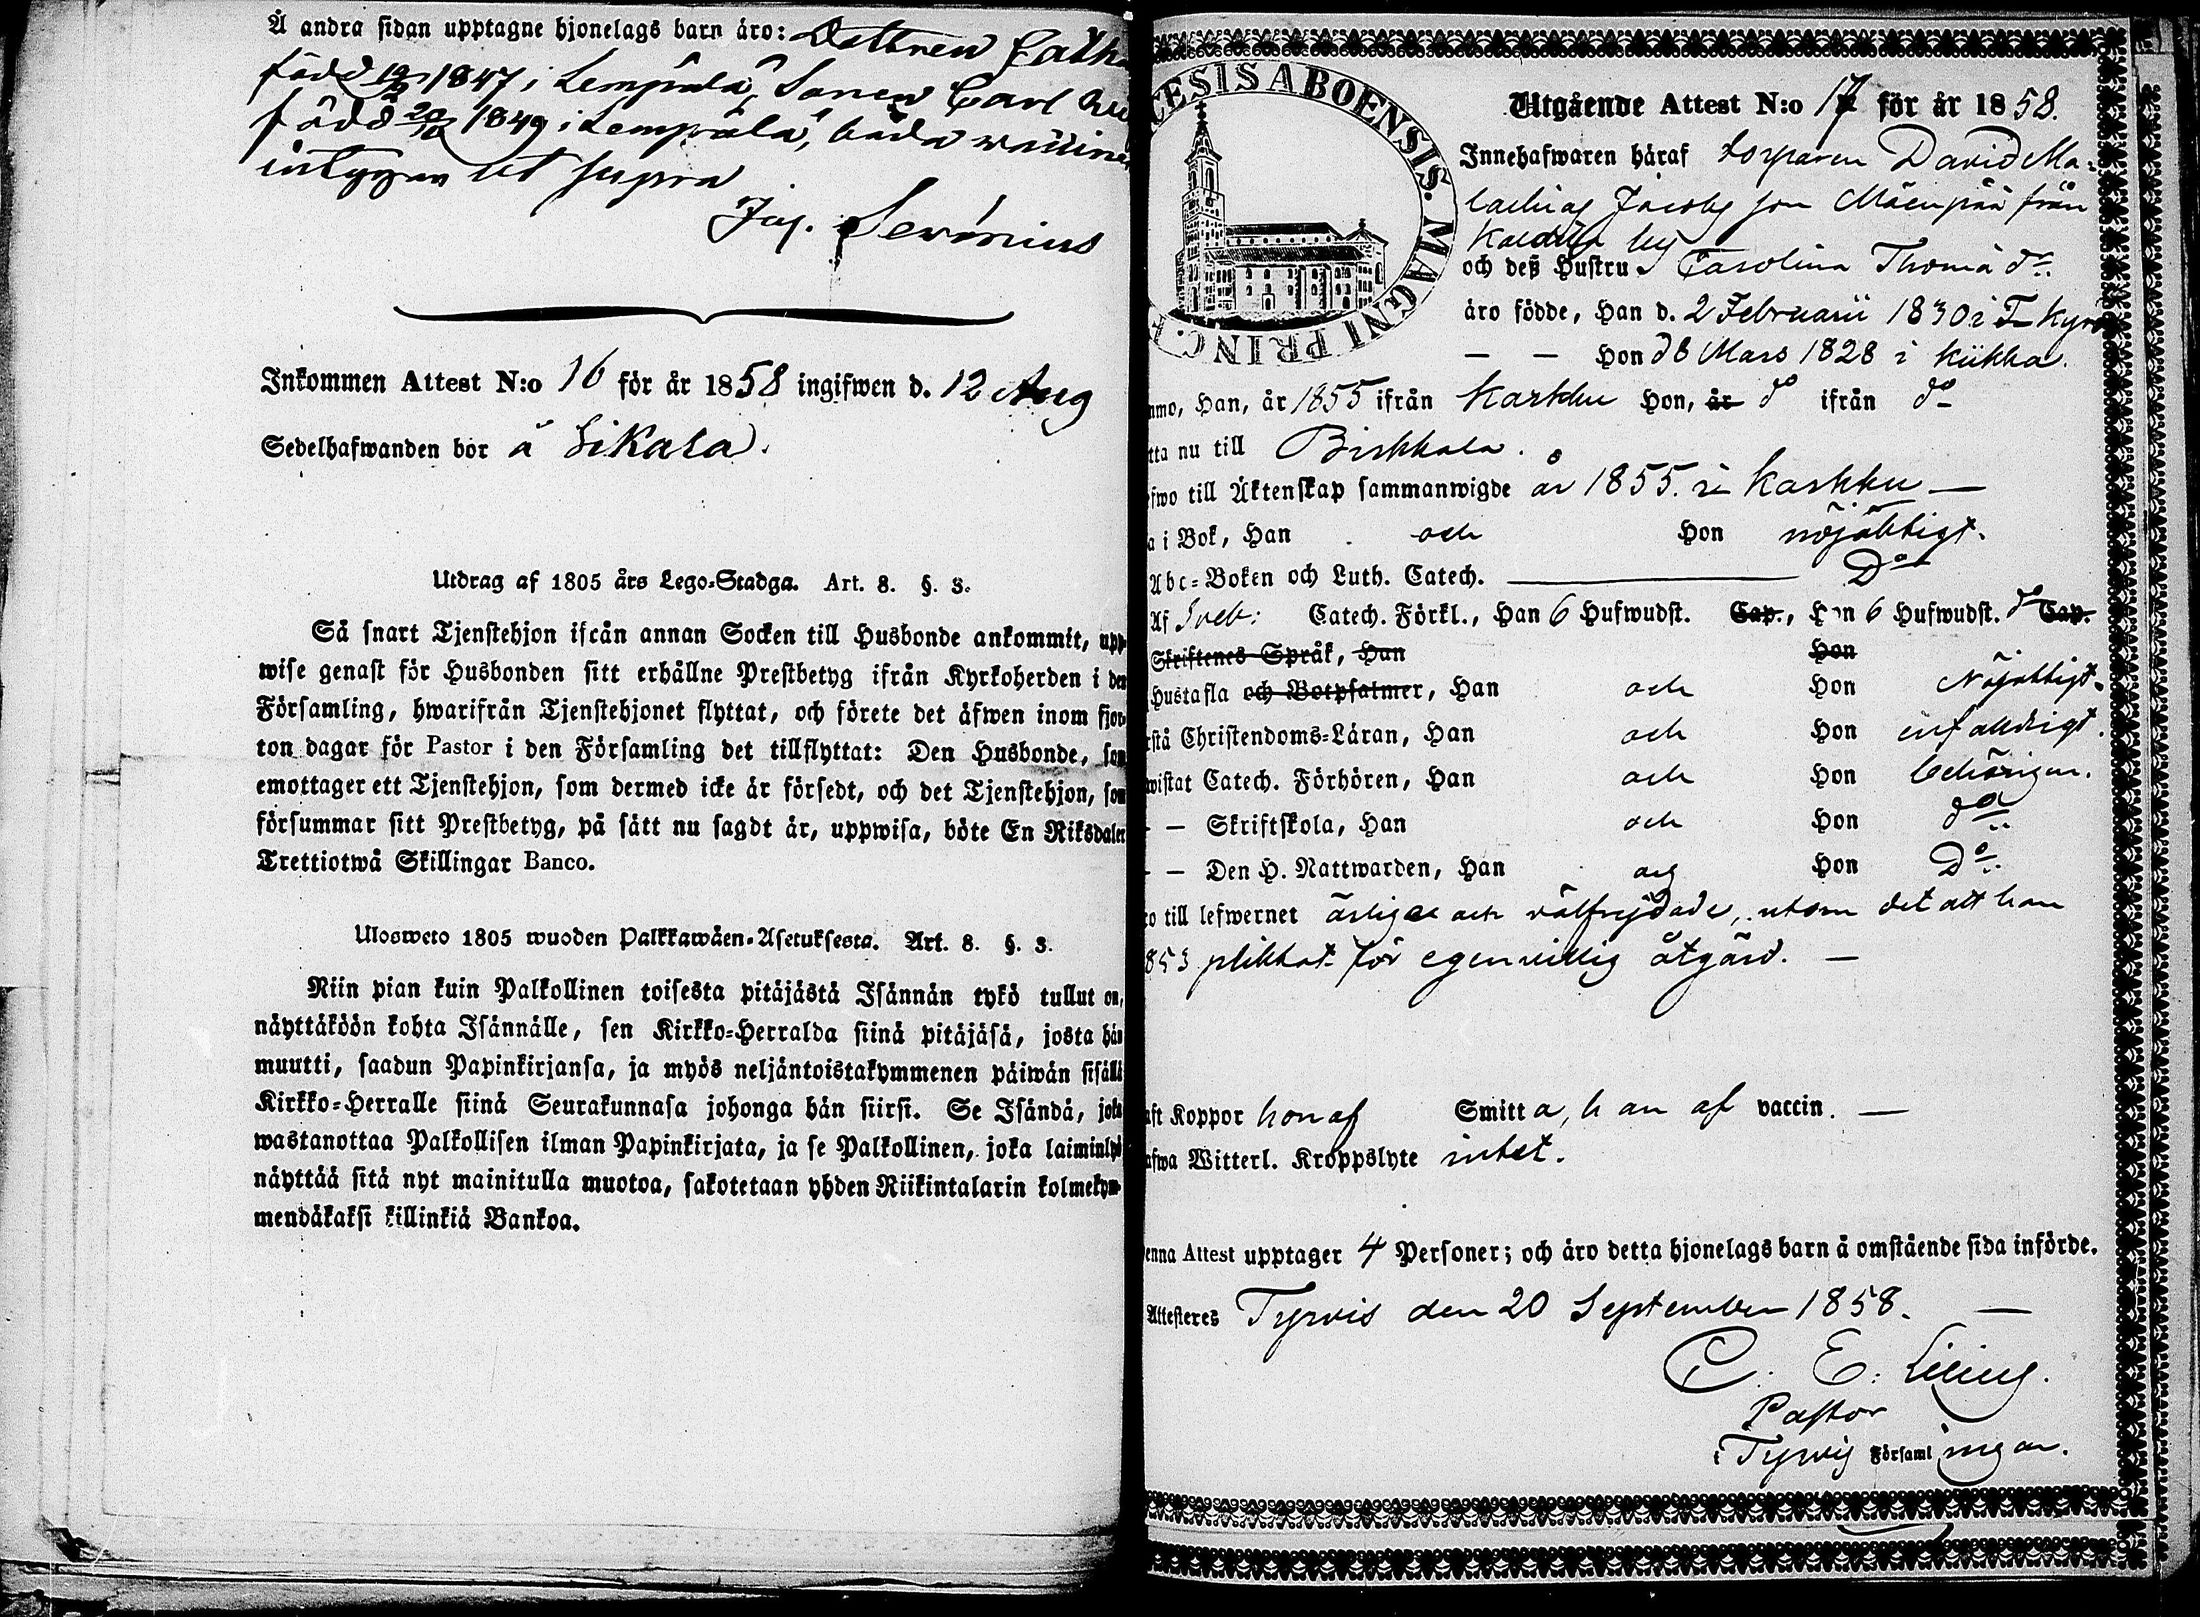 Å andra sidan upptagne hjonelags barn äro: Dottren Cath
född 19/9 1847 i Lempälä, Sonen Carl
född 20/10 1849 i Lempälä, båda
intygan ut supra
Jag. Serónius
Inkommen Attest N:o 16 för år 1858 ingifwen d. 12 Aug
Sedelhafwanden bor å Sikala.
Utdrag af 1805 års Lego-Stadga. Art. 8. §. 3.
Så snart Tjenstehjon ifrån annan Socken till Husbonde ankommit, upp
wise genast för Husbonden sitt erhållne Prestbetyg ifrån Kyrkoherden i den
Församling, hwarifrån Tjenstehjonet flyttat, och förete det äfwen inom fjor-
ton dagar för Pastor i den Församling det tillflyttat: Den Husbonde, som
emottager ett Tjenstehjon, som dermed icke är försedt, och det Tjenstehjon, som
försummar sitt Prestbetyg, på sätt nu sagdt är, uppwisa, böte En Riksdaler
Trettiotwå Skillingar Banco.
Ulosweto 1805 wuoden Palkkawäen-Asetuksesta. Art. 8. §. 3.
Niin pian kuin Palkollinen toisesta pitäjästä Isännän tykö tullut on,
näyttäköön kohta Isännälle, sen Kirkko-Herralda siinä pitäjäsä, josta hän
muutti, saadun Papinkirjansa, ja myös neljäntoistakymmenen päiwän sisällä
Kirkko-Herralle siinä Seurakunnasa johonga hän siirsi. Se Isändä, joka
wastanottaa Palkollisen ilman Papinkirjata, ja se Palkollinen, joka laiminlyö
näyttää sitä nyt mainitulla muotoa, sakotetaan yhden Riikintalarin kolmekym-
mendäkaksi killinkiä Bankoa.
CESIS ABOENSIS. MAGNI PRINC. F
Utgående Attest N:o 17 för år 1858.
Innehafwaren häraf torparen David Ma-
lachias Jacobs son Mäenpää från
by
och deß Hustru Carolina Thomä dr.
äro födde, Han d. 2 Februarii 1830 i T kyro
— — Hon d 8 Mars 1828 i Kiikka.
mmo, Han, år 1855 ifrån Karkku Hon, år do ifrån do
tta nu till Birkkala.
efwo till Äktenskap sammanwigde år 1855. i Karkku —
a i Bok, Han och Hon nöjaktigt.
Abc-Boken och Luth. Catech. Do
Af Sveb: Catech. Förkl., Han 6 Hufwudst. Cap., Hon 6 Hufwudst. do Cap.
Skriftenes Språk, Han Hon
Hustafla och Botpsalmer, Han och Hon Nöjaktigt.
rstå Christendoms-Läran, Han och Hon enfaldigt.
wistat Catech. Förhören, Han och Hon behörigen.
— — Skriftskola, Han och Hon do
— — Den H. Nattwarden, Han och Hon Do
ro till lefwernet ärliga och välfrejdade, utom det att han
853 plikkat för egenvillig åtgärd. —
aft Koppor hon af Smitta, han af vaccin. —
afwa Witterl. Kroppslyte intet.
enna Attest upptager 4 Personer; och äro detta hjonelags barn å omstående sida införde.
Attesteres Tyrvis den 20 September 1858. —
C. E. Lilius.
Pastor
i Tyrvis Församlingar.